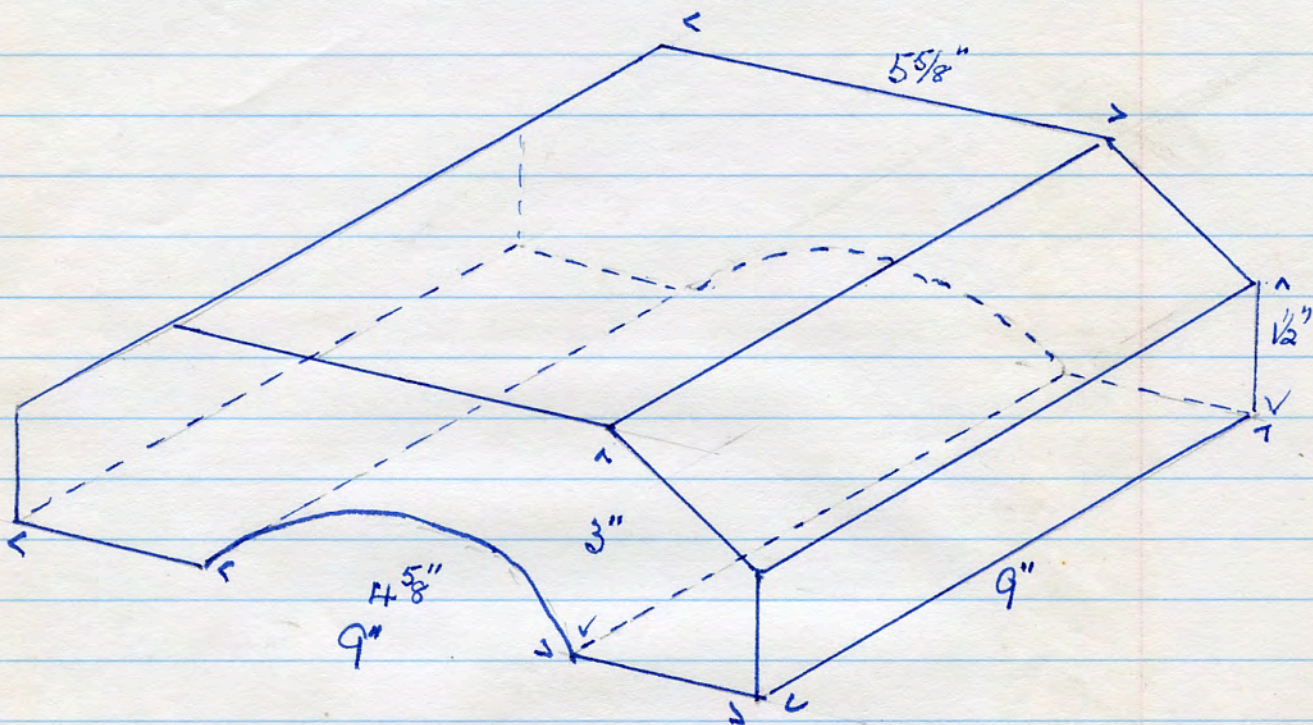 5 5/8"
1/2"
3"
4 5/8"
9"
9"